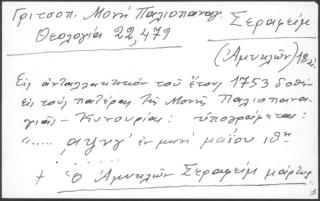 Γριτσοπ. Μονή Παλιοπαναγ.
Σεραφείμ
Θεολογία 22,479
(Ἀμυκλῶν) 18αι.
Εἰς ἀνταλλακτικόν τοῦ ἔτους 1753 δοθέν
εἰς τούς πατέρας τῆς Μονῆς Παλιοπανα-
γιᾶς - Κυνουρίας: ὑπογράφεται:
"..... αψνγ' ἐν μηνί μαΐου 18ῃ
+ ὁ Ἀμυκλῶν Σεραφείμ μάρτυς